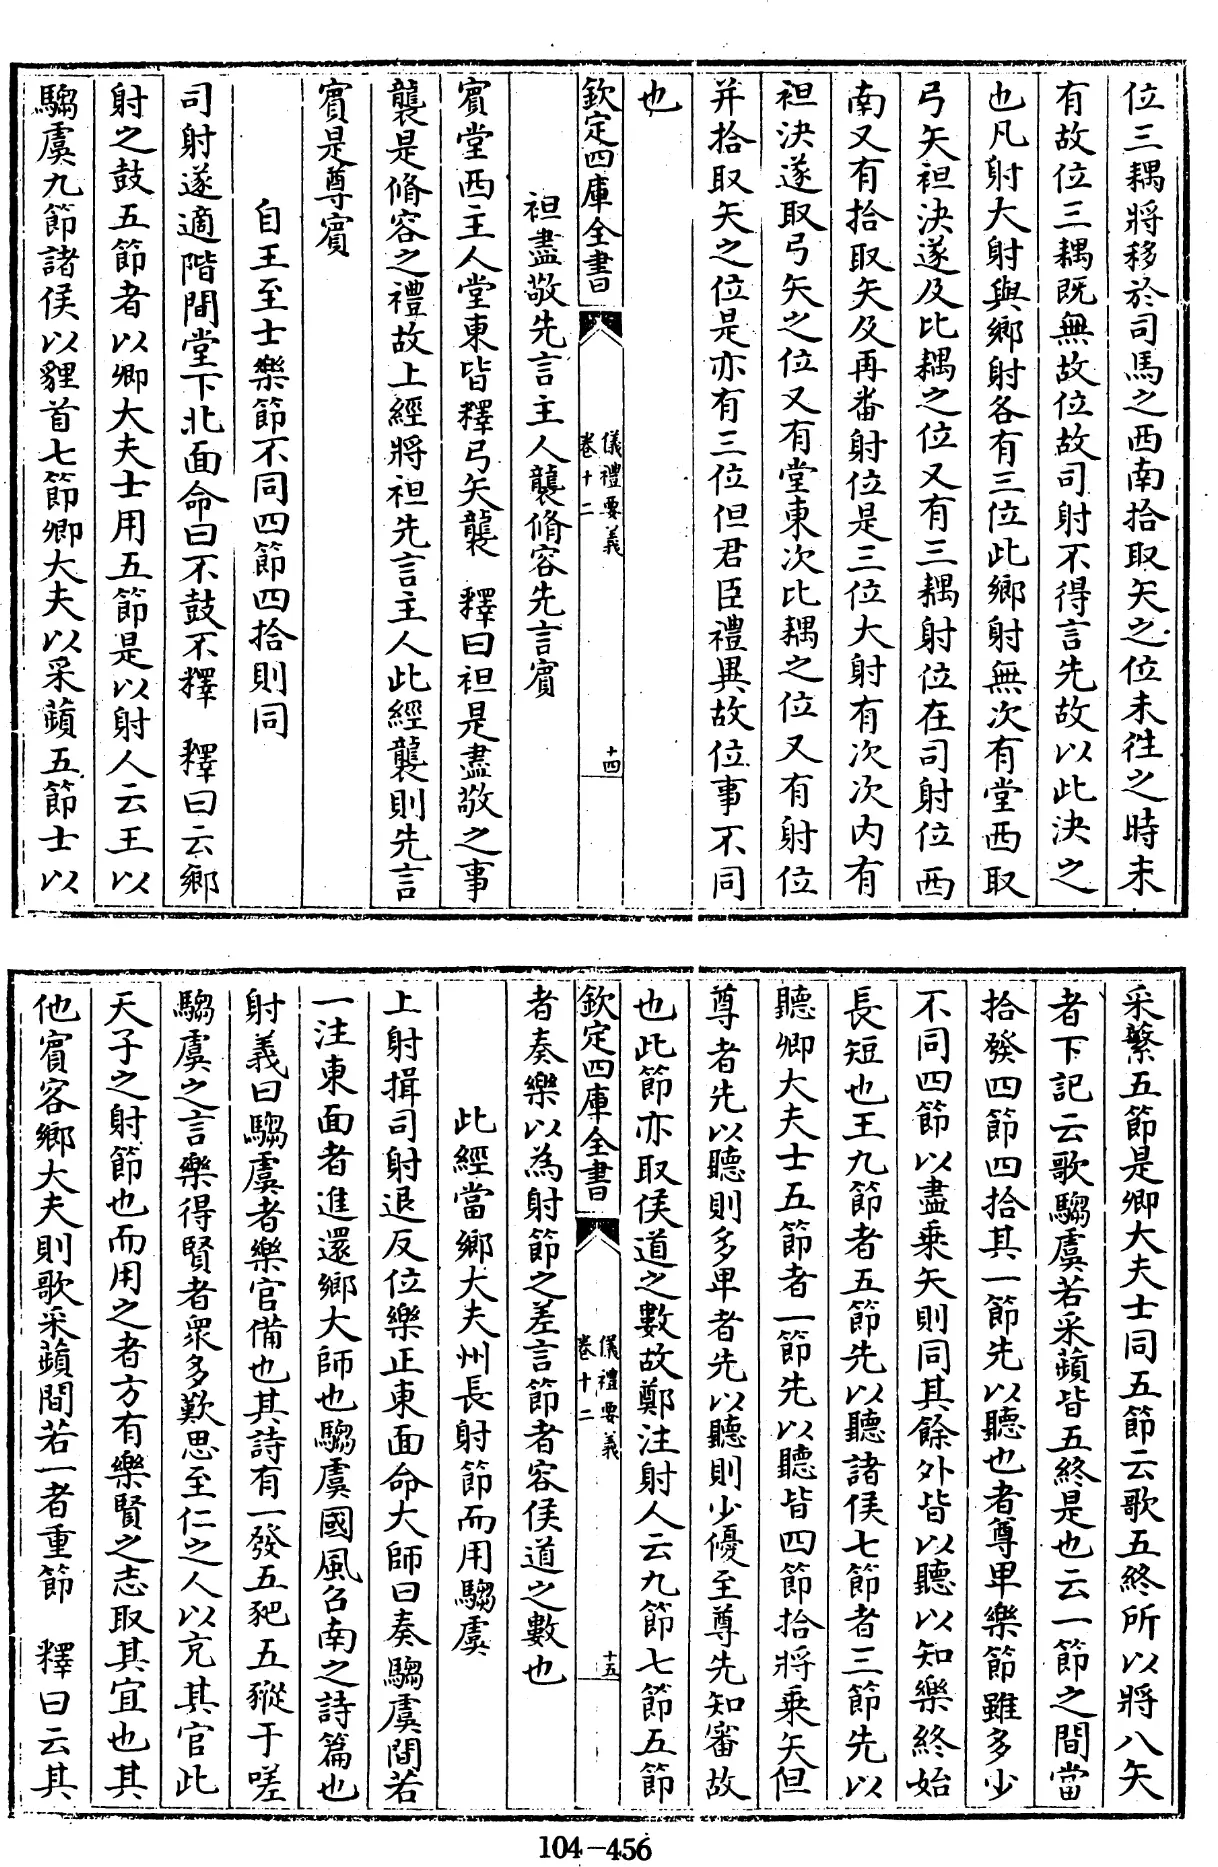 位三耦將移於司馬之西南拾取矢之位未往之時未
有故位三耦既無故位故司射不得言先故以此決之
也凡射大射與鄉射各有三位此鄉射無次有堂西取
弓矢袒決遂及比耦之位又有三耦射位在司射位西
南又有拾取矢及再番射位是三位大射有次次内有
袒決遂取弓矢之位又有堂東次比耦之位又有射位
并拾取矢之位是亦有三位但君臣禮異故位事不同
也
欽定四庫全書
儀禮要義
卷十二
十四
袒盡敬先言主人襲脩容先言賓
賓堂西主人堂東皆釋弓矢襲 釋曰袒是盡敬之事
襲是脩容之禮故上經將袒先言主人此經襲則先言
賓是尊賓
自王至士樂節不同四節四拾則同
司射遂適階間堂下北面命曰不鼓不釋 釋曰云鄉
射之鼓五節者以卿大夫士用五節是以射人云王以
騶虞九節諸侯以貍首七節卿大夫以采蘋五節士以
采蘩五節是卿大夫士同五節云歌五終所以將八矢
者下記云歌騶虞若采蘋皆五終是也云一節之間當
拾發四節四拾其一節先以聽也者尊卑樂節雖多少
不同四節以盡乗矢則同其餘外皆以聽以知樂終始
長短也王九節者五節先以聽諸侯七節者三節先以
聽卿大夫士五節者一節先以聽皆四節拾將乗矢但
尊者先以聽則多卑者先以聽則少優至尊先知審故
也此節亦取侯道之數故鄭注射人云九節七節五節
欽定四庫全書
儀禮要義
卷十二
十五
者奏樂以為射節之差言節者容侯道之數也
此經當鄉大夫州長射節而用騶虞
上射揖司射退反位樂正東面命大師曰奏騶虞間若
一注東面者進還鄉大師也騶虞國風召南之詩篇也
射義曰騶虞者樂官備也其詩有一發五豝五豵于嗟
騶虞之言樂得賢者眾多歎思至仁之人以充其官此
天子之射節也而用之者方有樂賢之志取其宜也其
他賓客鄉大夫則歌采蘋間若一者重節 釋曰云其
104-456